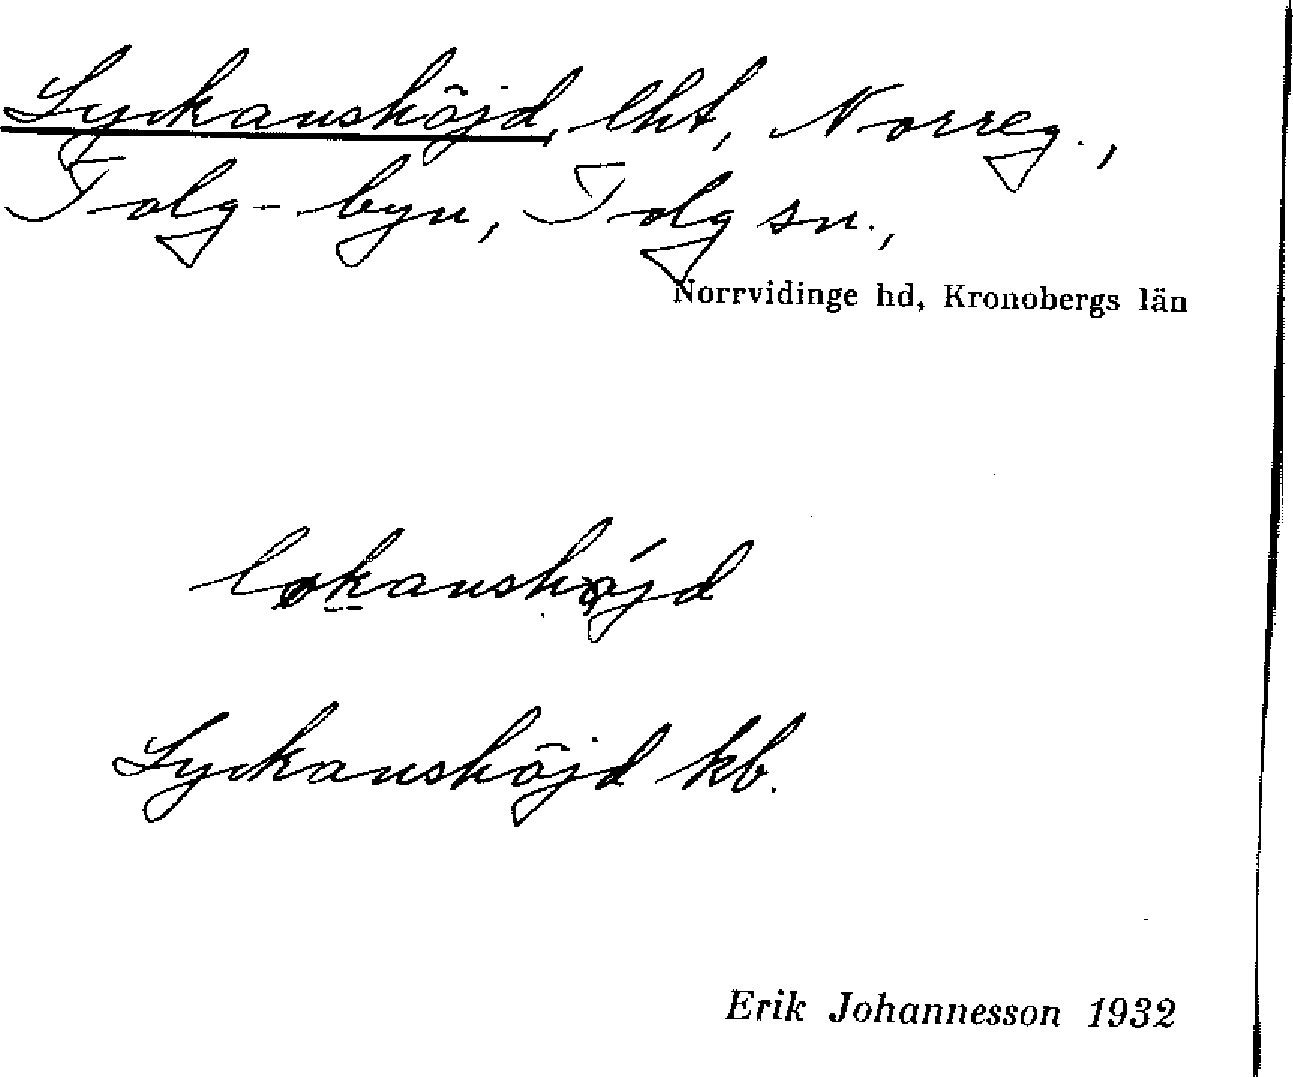 Lyckanshöjd, lht, Norreg.,
Tolg-byn, Tolg sn.,
Norrvidinge hd, Kronobergs län
Lyckanshöjd kb.
Erik Johannesson 1932